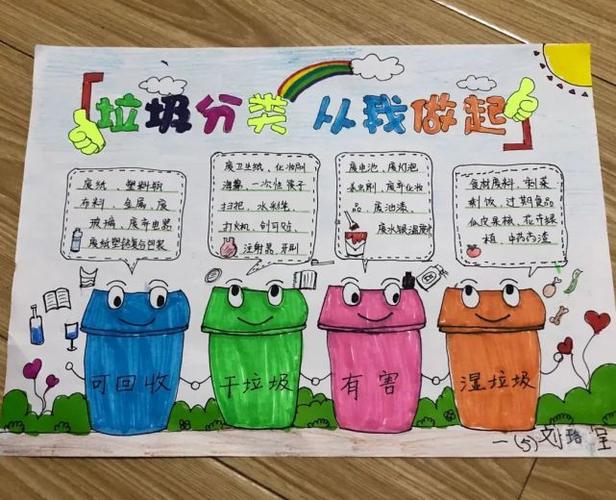 垃圾分类 从我做起
废纸、塑料瓶
布料、金属、废
玻璃、废弃电器
废纸塑铝复合包装
废卫生纸、化妆刷
海藻、一次性筷子
扫把、水彩笔、
打火机、创可贴
注射器、牙刷
废电池、废灯泡
杀虫剂、废弃化妆
品、废油漆、
废水银温度计
食材废料、剩菜
剩饭、过期食品
瓜皮果核、花卉绿
植、中药药渣
可回收
干垃圾
有害
湿垃圾
一(5) 刘